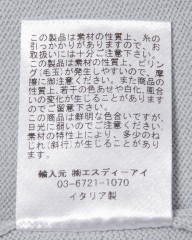 この製品は素材の性質上、糸の
引っかかりがありますので、お
取扱いには十分ご注意下さい。
この製品は素材の性質上、ピリン
グ(毛玉)が発生しやすいので、摩
擦に御注意下さい。また、商品の
特性上、若干の色あせや白化、風合い
の変化が生じることがあります
のでご留意下さい。
この商品は鮮明な色合いですが、
日光に弱いのでご注意下さい。
素材の特性により、多少のね
じれ(斜行)が生じることがあ
ります。
輸入元 ㈱エスディーアイ
03-6721-1070
イタリア製